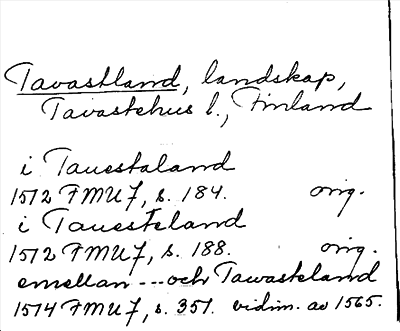 Tavastland, landskap,
Tavastehus l., Finland
i Tauestaland
1512 FMU 7, s. 184. orig.
i Tauesteland
1512 FMU 7, s. 188. orig.
emellan --- och Tawasteland
1514 FMU 7, s. 351. vidim. av 1565.